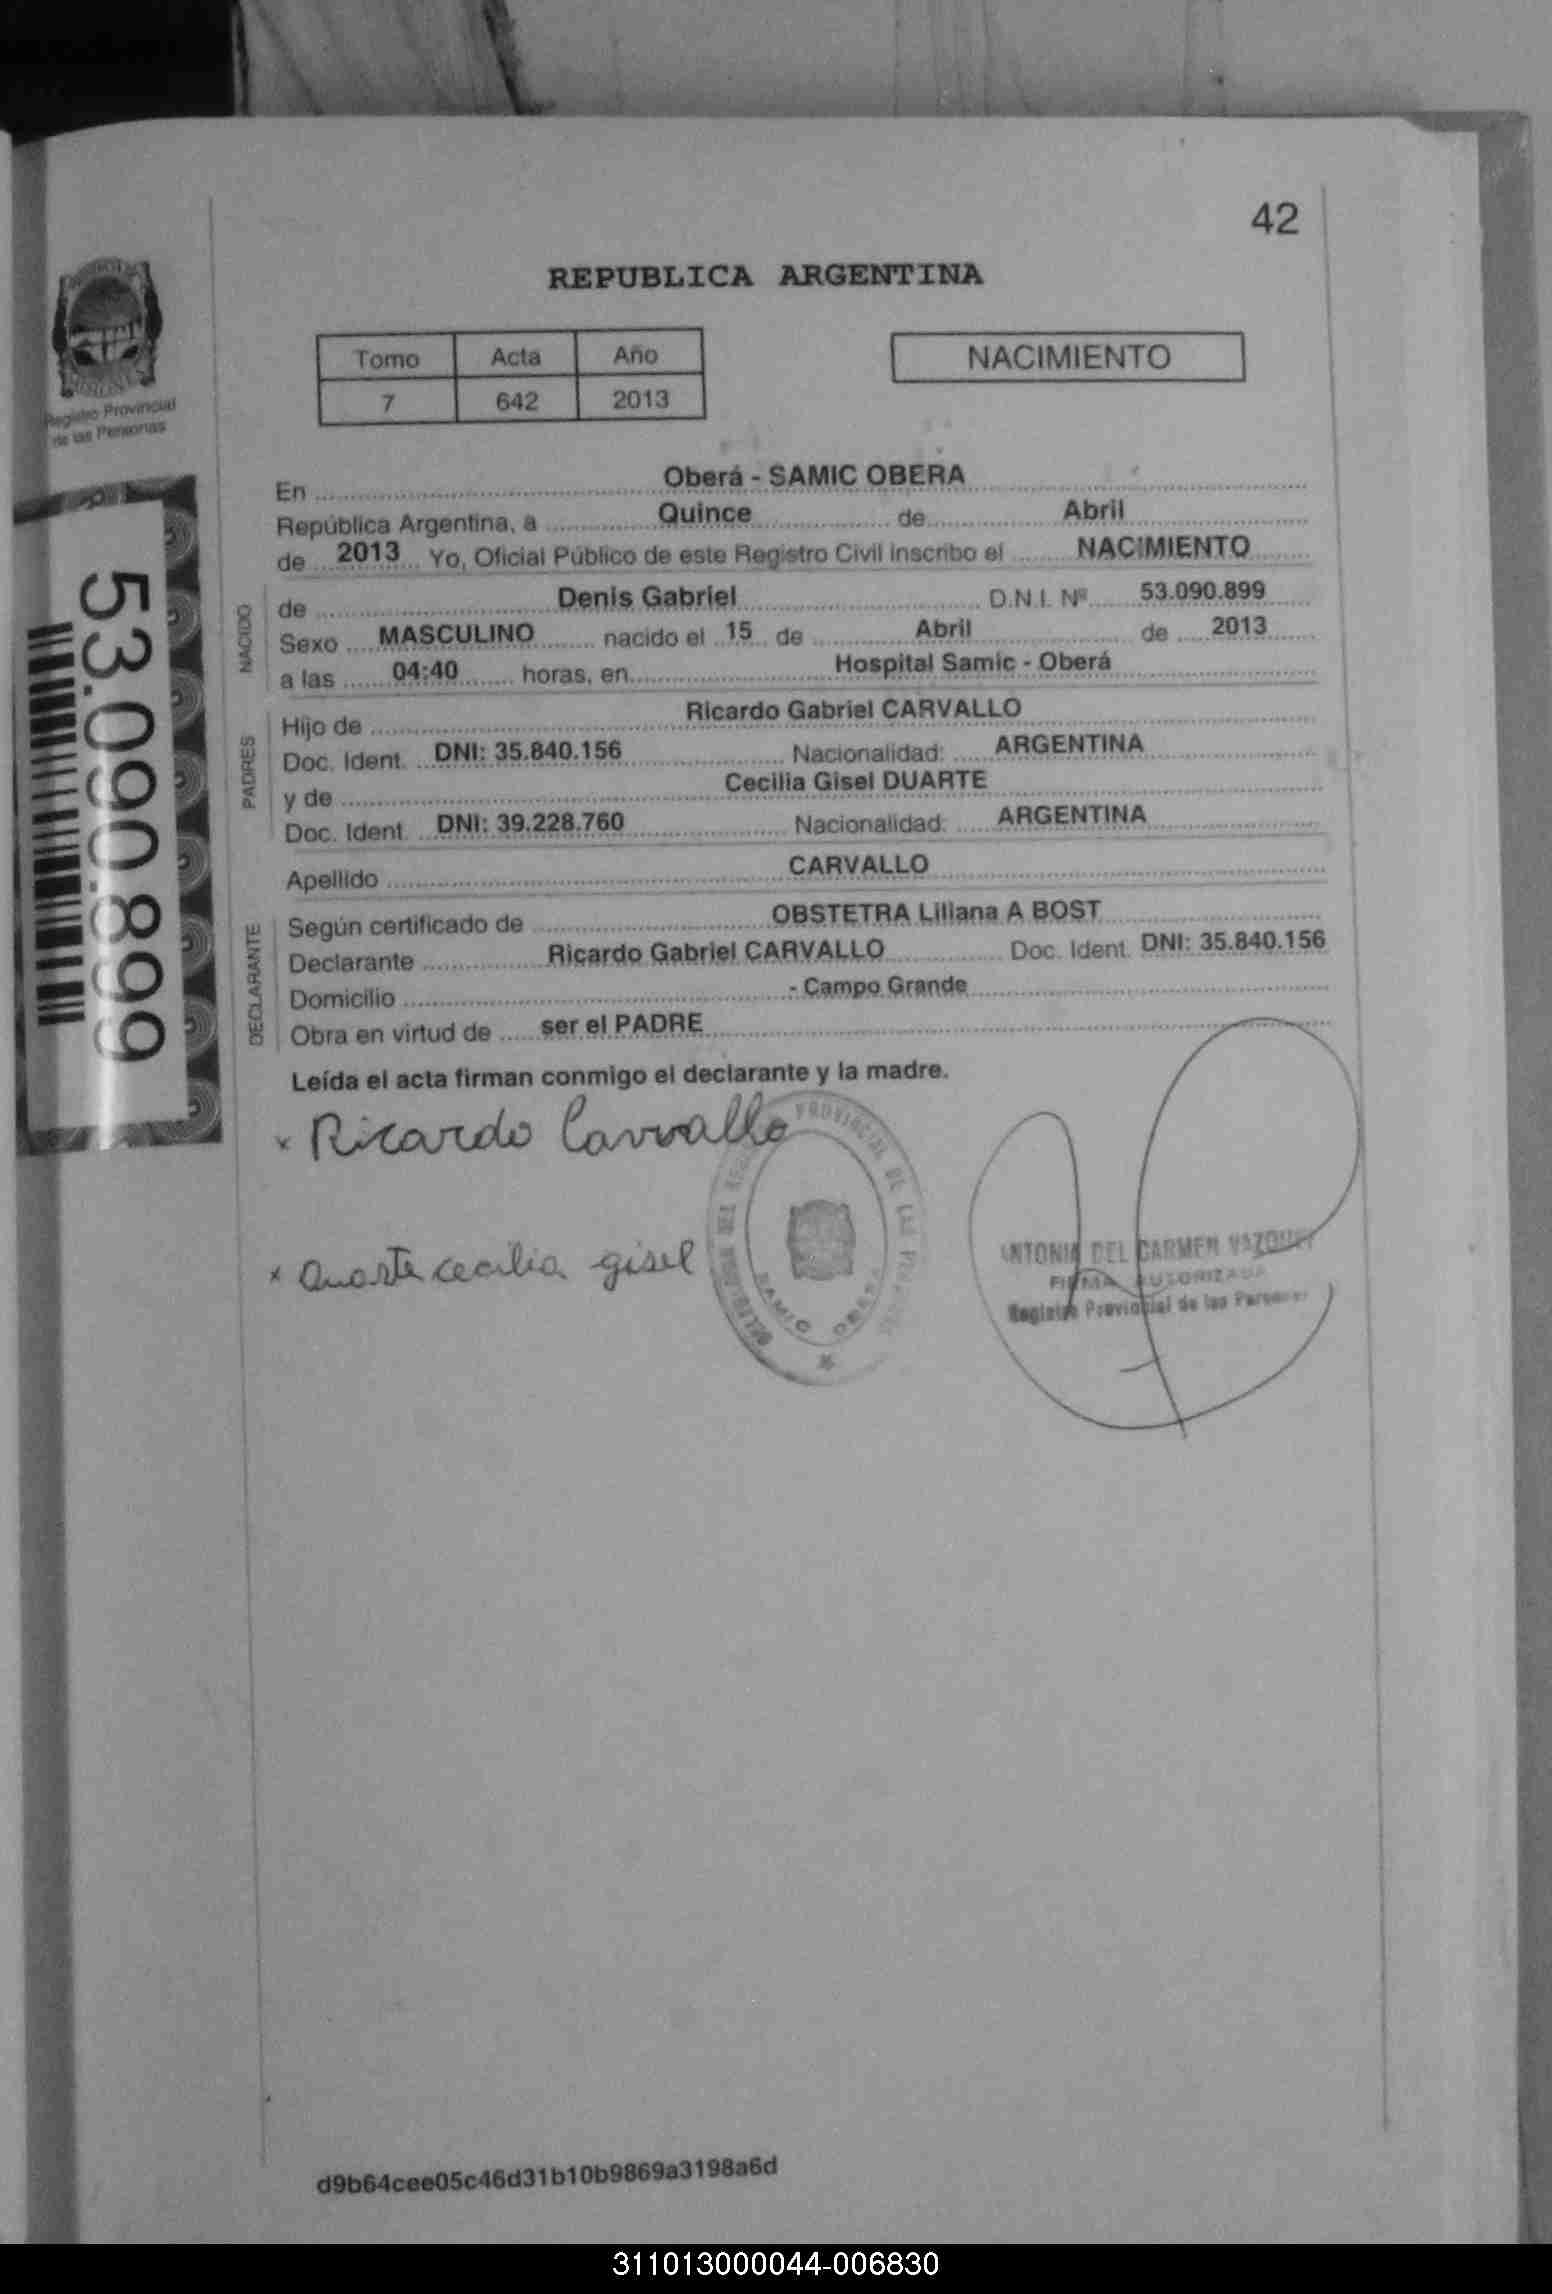 42
REPUBLICA ARGENTINA
Tomo Acta Año
7 642 2013
NACIMIENTO
Registro Provincial
de las Personas
53.090.899
En Oberá - SAMIC OBERA
República Argentina, a Quince de Abril
de 2013 Yo, Oficial Público de este Registro Civil inscribo el NACIMIENTO
NACIDO
de Denis Gabriel D.N.I. Nº 53.090.899
Sexo MASCULINO nacido el 15 de Abril de 2013
a las 04:40 horas, en Hospital Samic - Oberá
PADRES
Hijo de Ricardo Gabriel CARVALLO
Doc. Ident. DNI: 35.840.156 Nacionalidad: ARGENTINA
y de Cecilia Gisel DUARTE
Doc. Ident. DNI: 39.228.760 Nacionalidad: ARGENTINA
Apellido CARVALLO
DECLARANTE
Según certificado de OBSTETRA Liliana A BOST
Declarante Ricardo Gabriel CARVALLO Doc. Ident. DNI: 35.840.156
Domicilio - Campo Grande
Obra en virtud de ser el PADRE
Leída el acta firman conmigo el declarante y la madre.
x Ricardo Carvallo
x Duarte cecilia gisel
PROVINCIAL DE LAS
SAMIC OBERA
ANTONIA DEL CARMEN VAZQUEZ
FIRMA AUTORIZADA
Registro Provincial de las Personas
d9b64cee05c46d31b10b9869a3198a6d
311013000044-006830